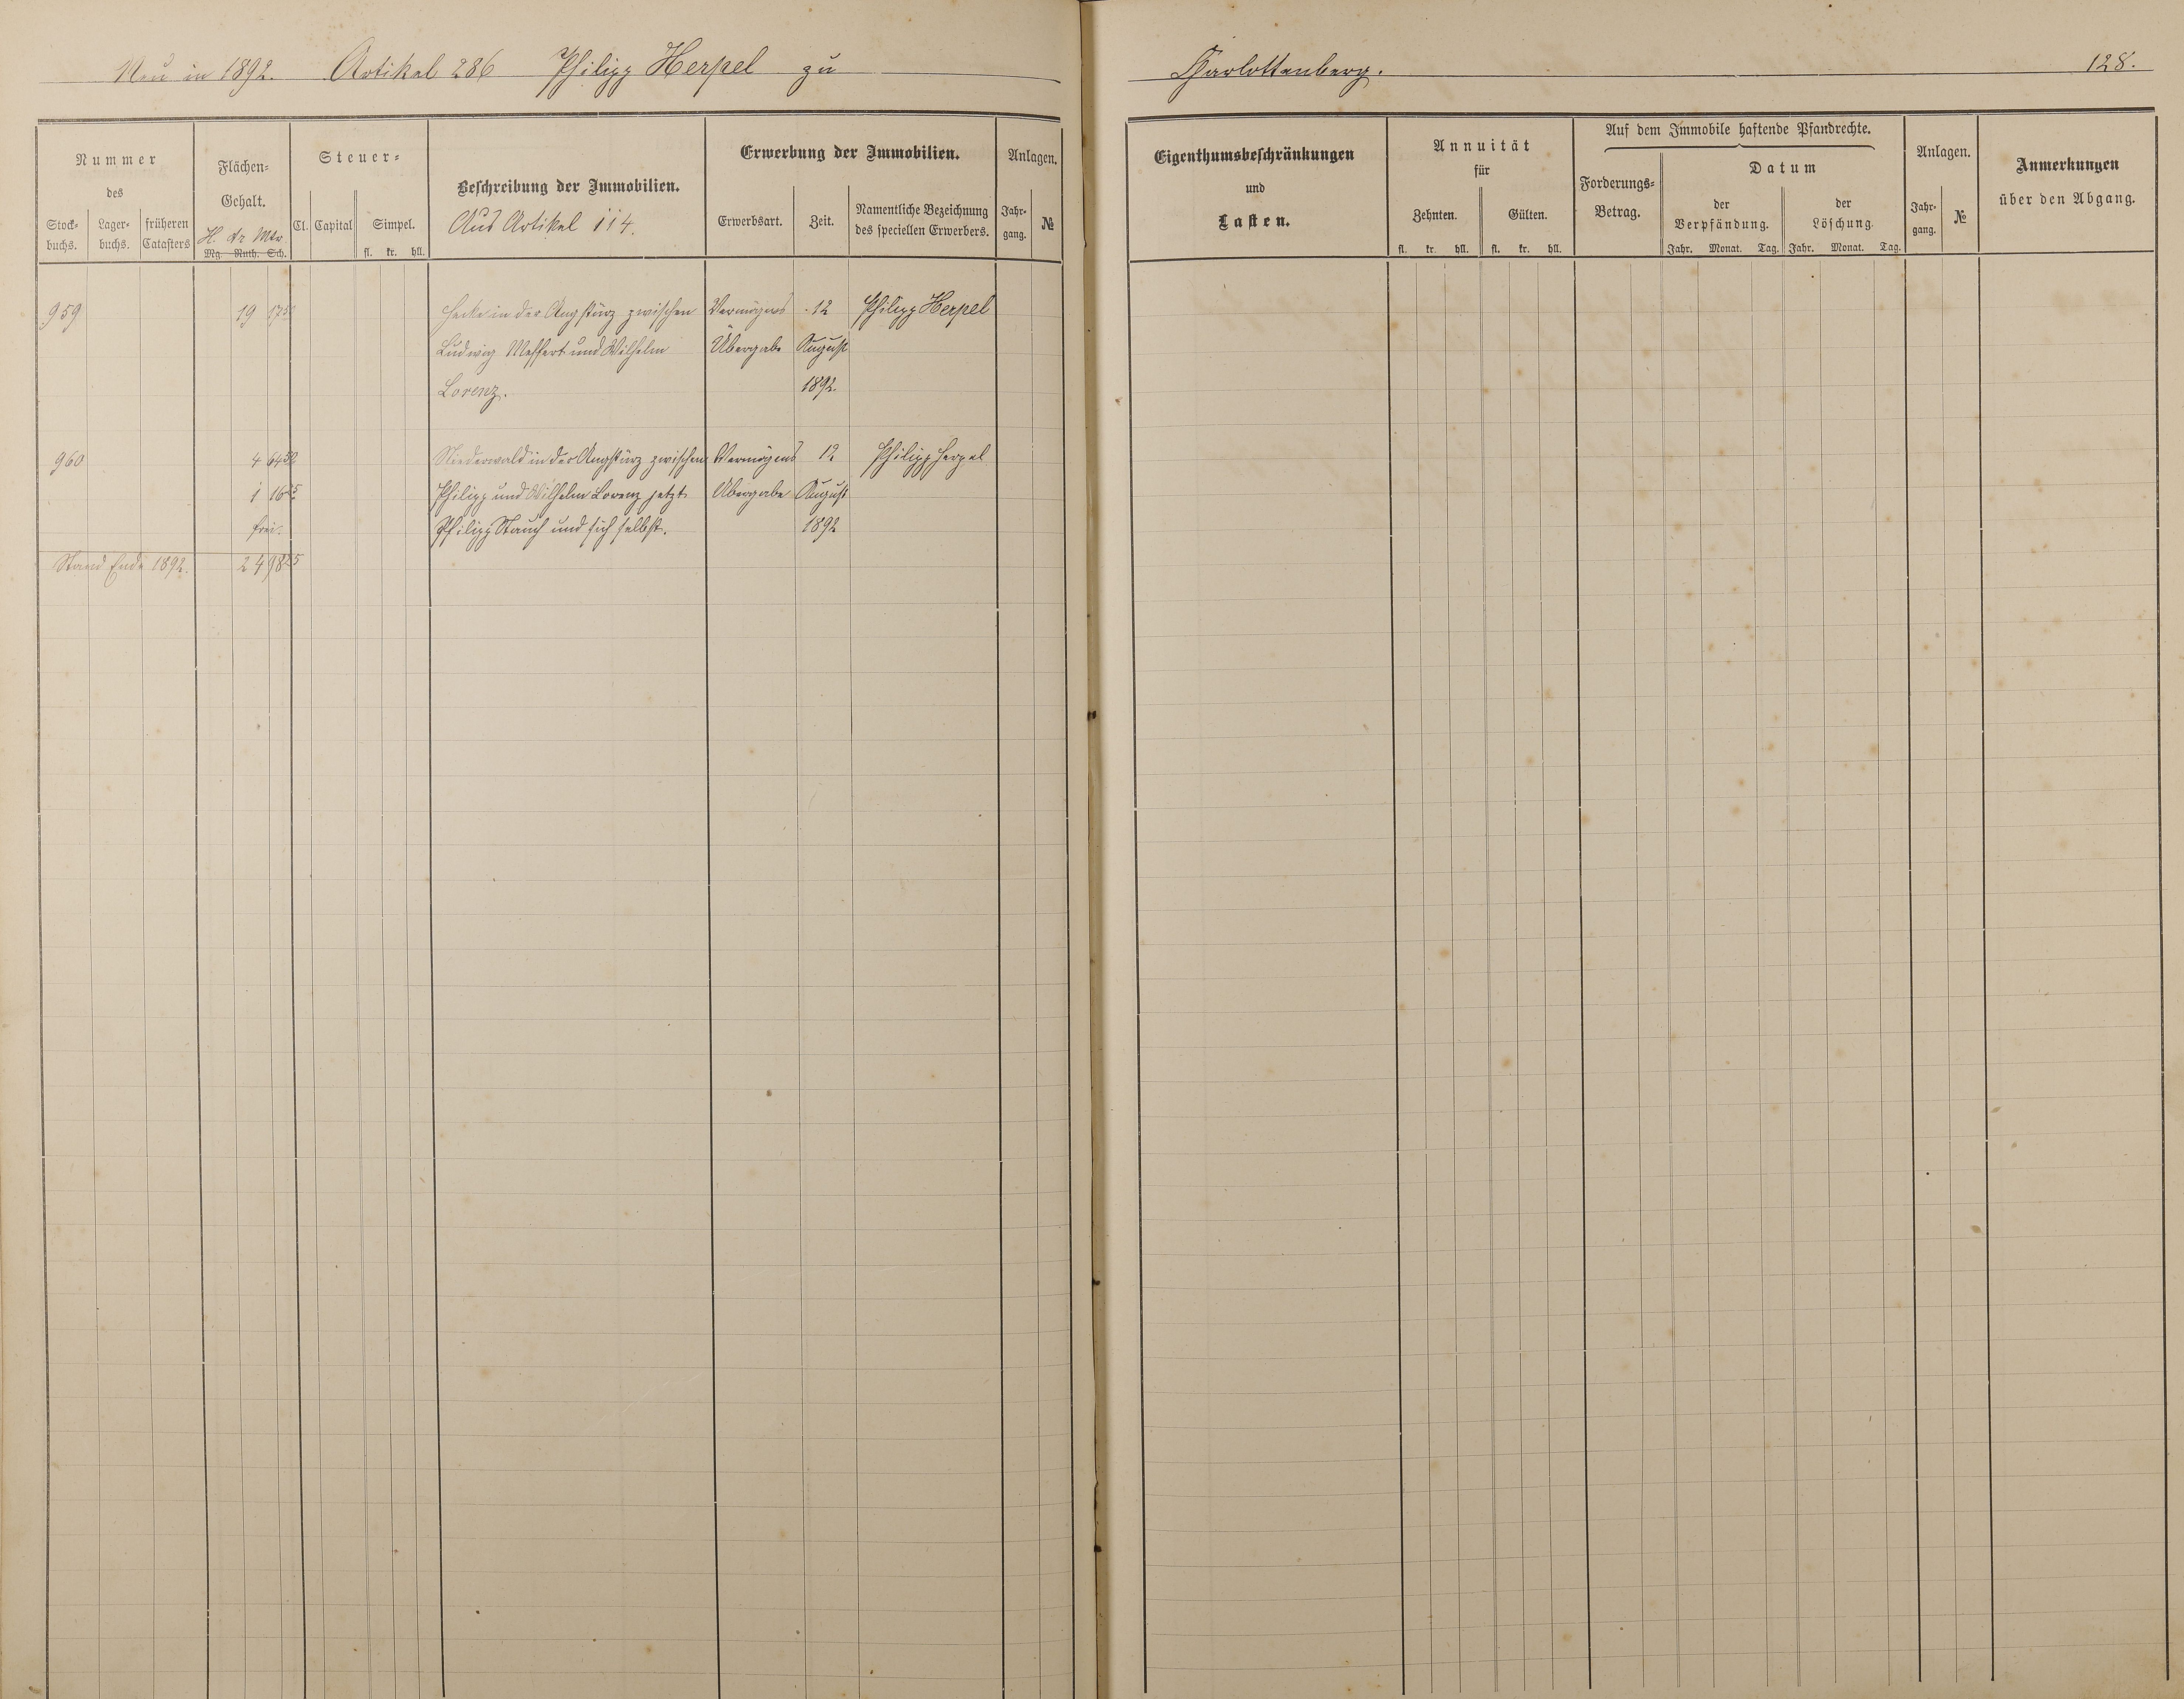 Neu in 1892. Artikel 286 Philipp Herpel zu
Nummer
des
Stock-
buchs.
Lager-
buchs.
früheren
Catasters
Flächen-
Gehalt.
H. Ar Mtr
Mg. Ruth. Sch.
Steuer-
Cl. Capital Simpel.
fl. kr. hll.
Beschreibung der Immobilien.
Aus Artikel 114.
Erwerbung der Immobilien.
Erwerbsart. Zeit.
Namentliche Bezeichnung
des speciellen Erwerbers.
Anlagen.
Jahr-
gang.
№
959 19 17 50 Hecke in der Angstürz zwischen Vermögens 12 Philipp Herpel
Ludwig Meffert und Wilhelm Übergabe August
Lorenz. 1892.
960 4 64 50 Niederwald in der Angstürz zwischen Vermögens 12 Philipp Herpel
1 16 25 Philipp und Wilhelm Lorenz jetzt Übergabe August
frei. Philipp Stauch und sich selbst. 1892
Stand Ende 1892. 24 98 25
Charlottenberg. 128.
Eigenthumsbeschränkungen
und
Lasten.
Annuität
für
Zehnten. Gülten.
fl. kr. hll. fl. kr. hll.
Auf dem Immobile haftende Pfandrechte.
Forderungs-
Betrag.
Datum
der
Verpfändung.
Jahr. Monat. Tag.
der
Löschung.
Jahr. Monat. Tag.
Anlagen.
Jahr-
gang.
№
Anmerkungen
über den Abgang.